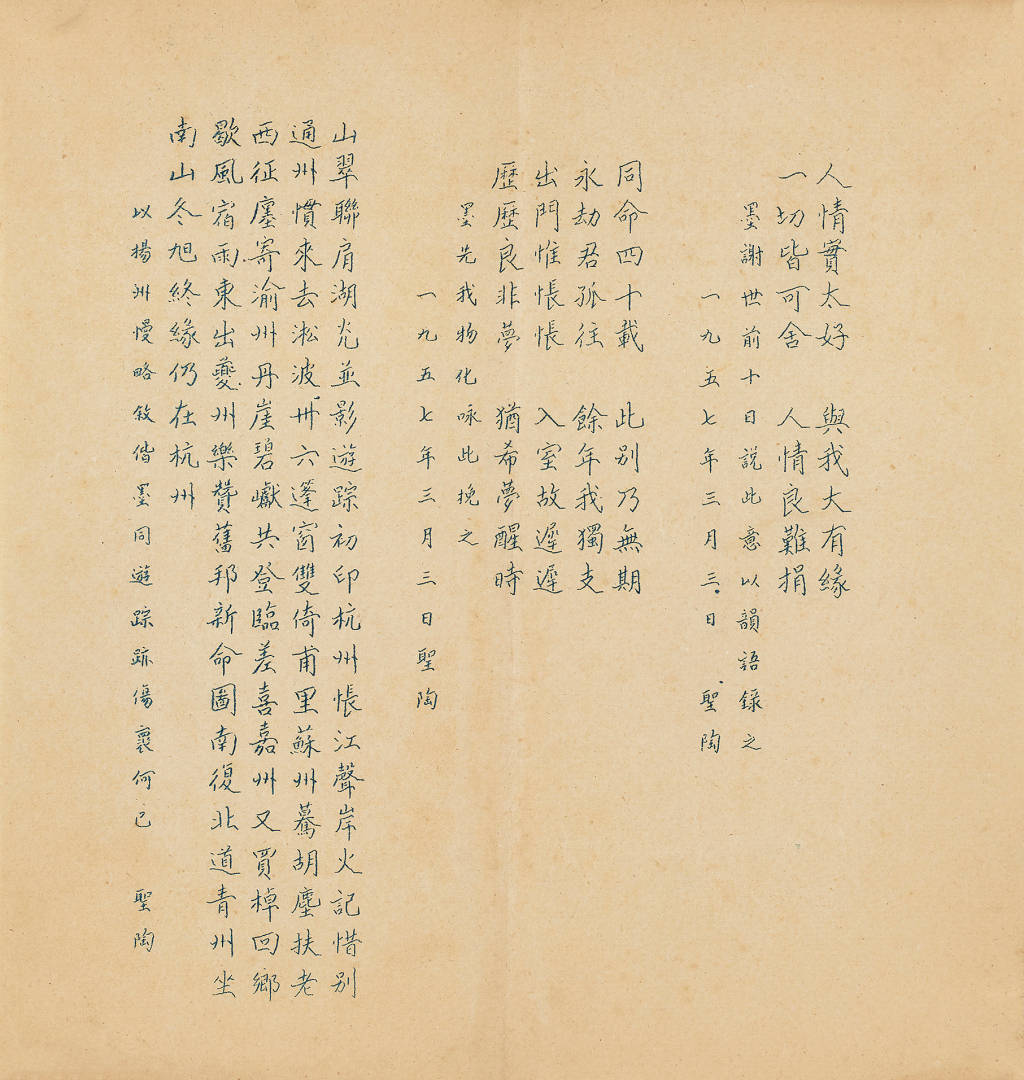 人情實太好　與我大有緣
一切皆可舍　人情良難捐
墨謝世前十日説此意以韻語錄之
一九五七年三月三日　聖陶
同命四十載　此别乃無期
永劫君孤往　餘年我獨支
出門惟悵悵　入室故遲遲
歷歷良非夢　猶希夢醒時
墨先我物化咏此挽之
一九五七年三月三日聖陶
山翠聯肩湖光並影遊踪初印杭州悵江聲岸火記惜别
通州慣來去淞波卅六篷窗雙倚甫里蘇州驀胡塵扶老
西征廛寄渝州丹崖碧巘共登臨差喜嘉州又買棹回鄉
歇風宿雨東出夔州樂贊舊邦新命圖南復北道青州坐
南山冬旭終緣仍在杭州
以揚洲慢略敘偕墨同遊踪跡傷褱何已　聖陶